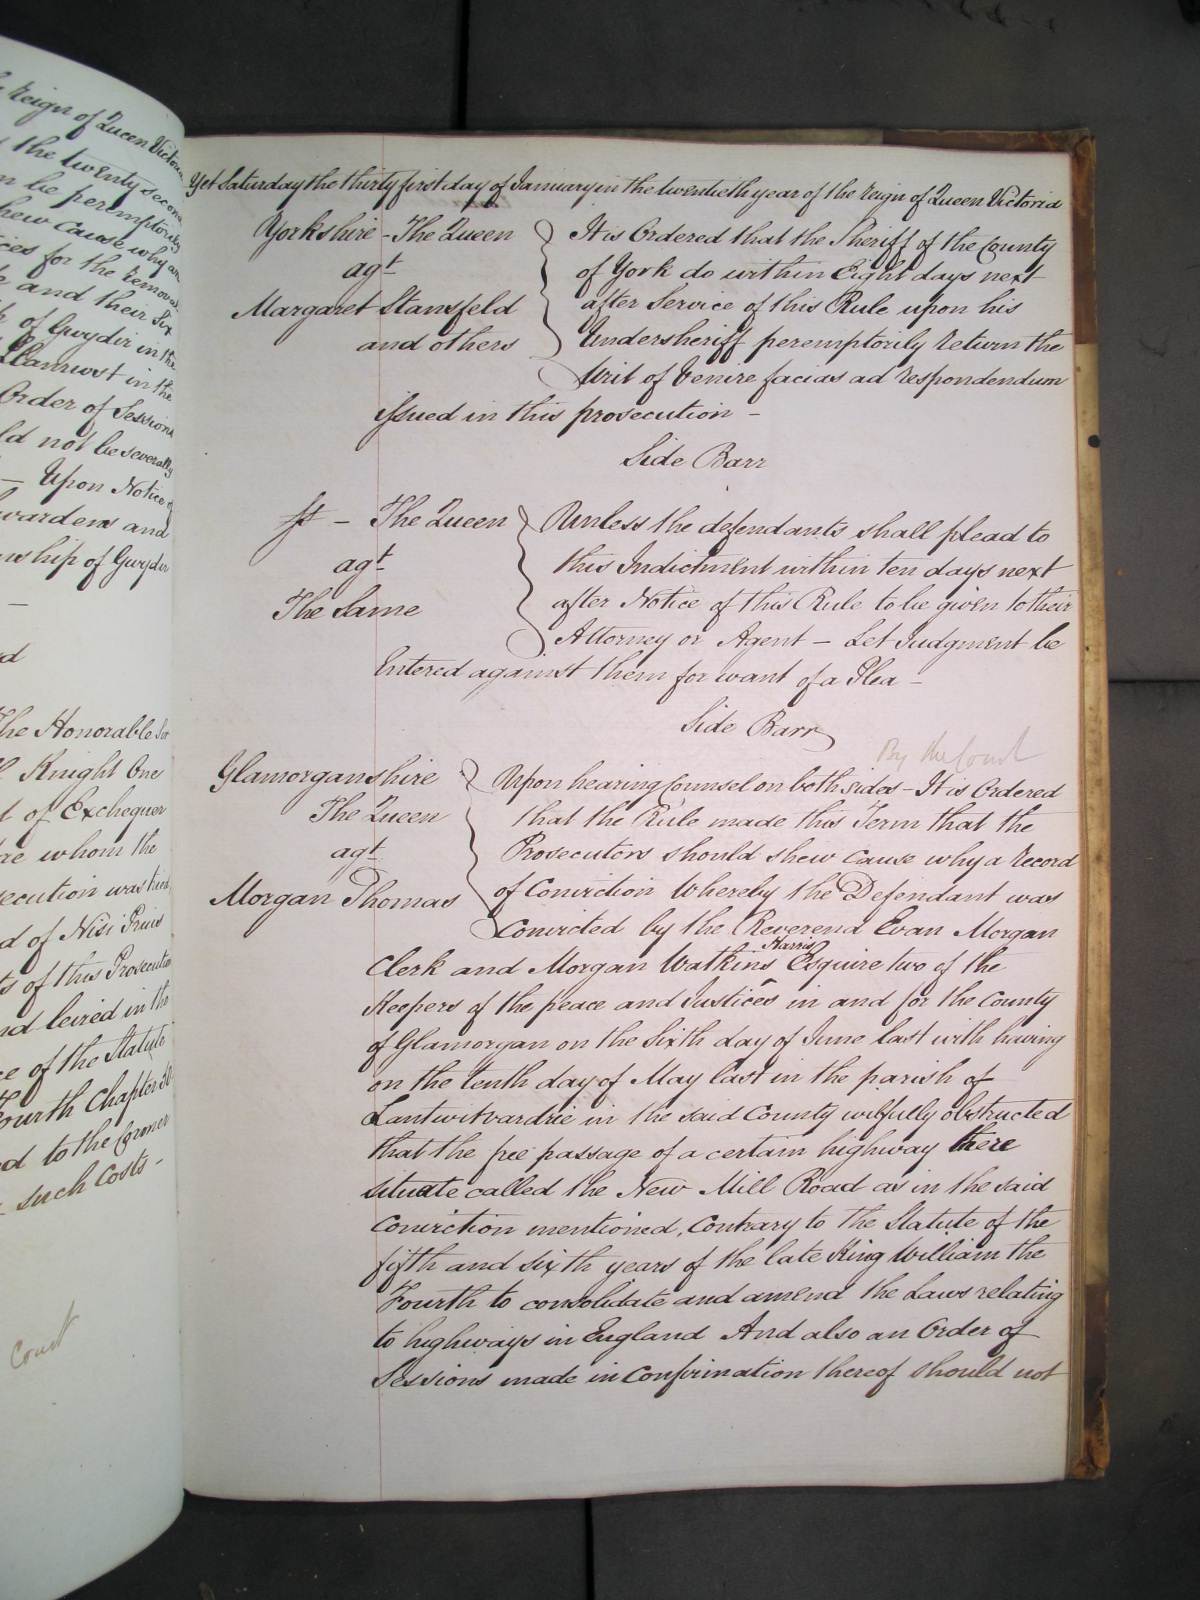 e Reign of Queen Victoria
the twenty second
be peremptorily
hew cause why an
ices for the removal
and their Six
of Gwydir in the
Llanrwst in the
Order of Sessions
ld not be severally
— Upon Notice of
wardens and
nship of Gwydir
—
The Honorable Sir
Knight One
t of Exchequer
re whom the
secution was tried
d of Nisi Prius
ts of this Prosecution
nd levied in the
ce of the Statute
Fourth Chapter 30
d to the Coroner
such costs -
Court
Yet Saturday the thirty first day of January in the twentieth year of the reign of Queen Victoria
Yorkshire - The Queen
agt
Margaret Stansfeld
and others
It is Ordered that the Sheriff of the County
of York do within Eight days next
after Service of this Rule upon his
Undersheriff peremptorily return the
Writ of Venire facias ad respondendum
issued in this prosecution -
Side Barr
St - The Queen
agt
The Same
Unless the defendants shall plead to
this Indictment within ten days next
after Notice of this Rule to be given to their
Attorney or Agent - Let Judgment be
Entered against them for want of a Plea -
Side Barr
By the Court
Glamorganshire
The Queen
agt
Morgan Thomas
Upon hearing Counsel on both sides - It is Ordered
that the Rule made this Term that the
Prosecutors should shew cause why a record
of Conviction Whereby the Defendant was
convicted by the Reverend Evan Morgan
Clerk and Morgan Watkins ^Harris Esquire two of the
Keepers of the peace and Justices in and for the County
of Glamorgan on the Sixth day of June last with having
on the tenth day of May last in the parish of
Lantwitvardrie in the said County wilfully obstructed
that the free passage of a certain highway there
situate called the New Mill Road as in the said
Conviction mentioned, Contrary to the Statute of the
fifth and sixth years of the late King William the
Fourth to consolidate and amend the Laws relating
to highways in England And also an Order of
Sessions made in confirmation thereof should not